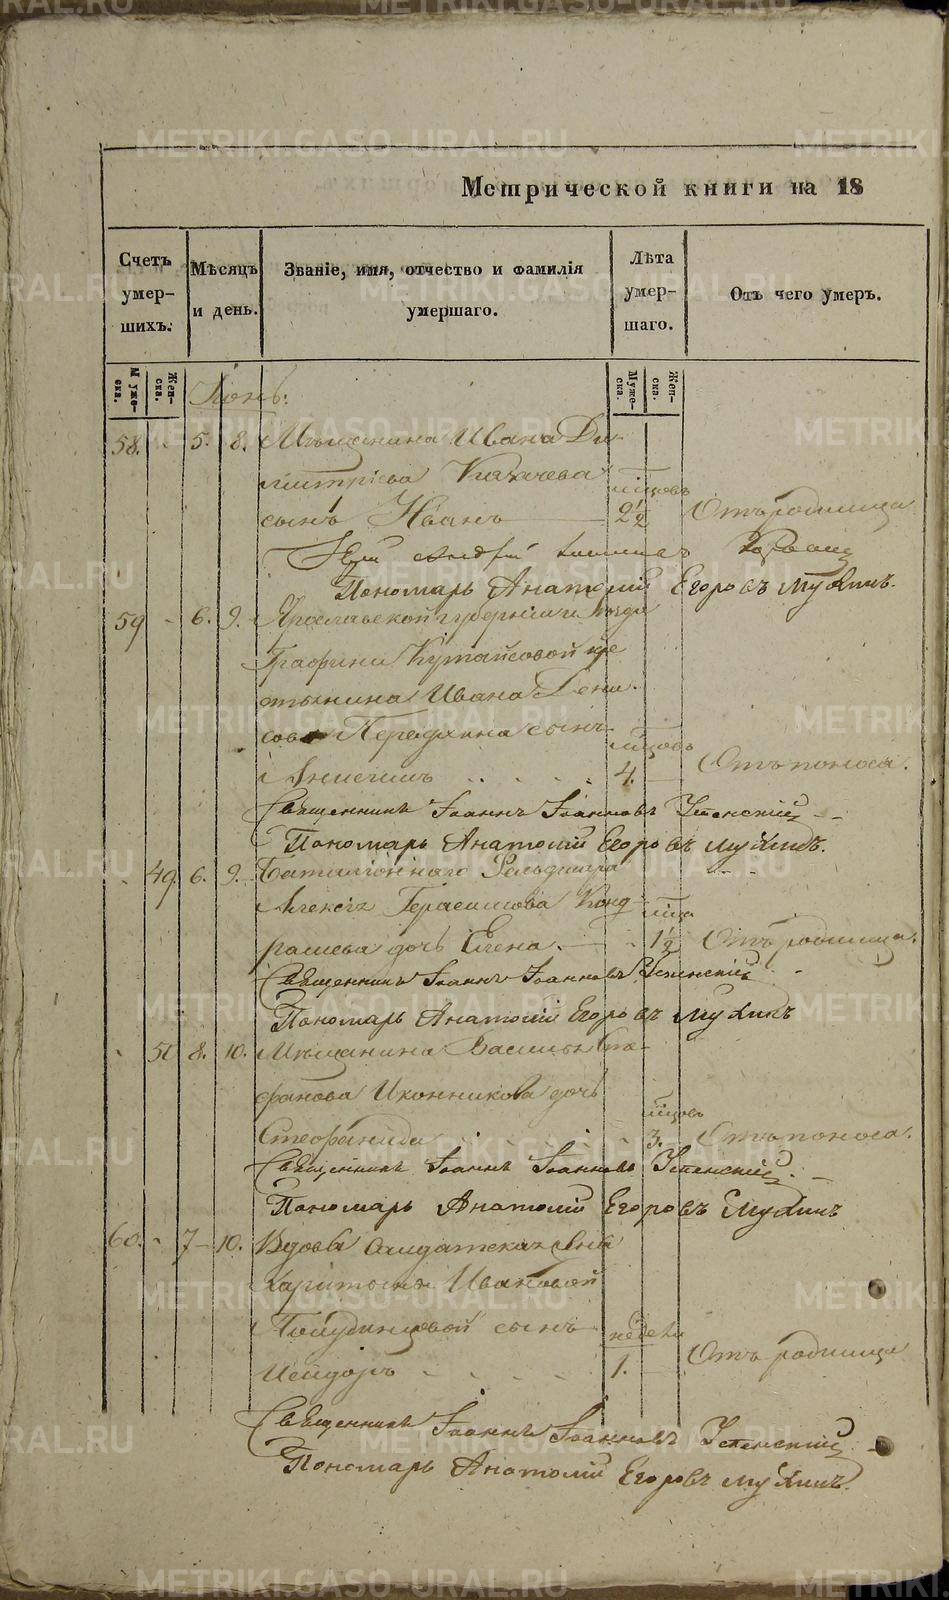 Метрической книги на 18
Счетъ умер- шихъ.
Мѣсяцъ и день.
Званіе, имя, отчество и фамилія умершаго.
Лѣта умер- шаго.
Отъ чего умеръ.
Муже- ска. Жен- ска.
Муже- ска. Жен- ска.
58. - 5. 8. Мѣщанина Ивана Ди-
митріева
мѣсцовъ
сынъ Иванъ 2½ Отъ родимца
Пономарь Анатолій Егоровъ Мухинъ.
59 - 6. 9. Ярославской губерніи
Графини Кутайсовой кре
стьянина Ивана Дени-
сова сынъ
мѣсцовъ
4. Отъ поноса.
Священникъ Іоаннъ Іоанновъ Успенскій
Пономарь Анатолій Егоровъ Мухинъ.
- 49 6. 9. Баталіоннаго Фельдшера
Алексія Герасимова Конд-
мѣсца
рашева дочь Елена. 1½ Отъ родимца.
Священникъ Іоаннъ Іоанновъ Успенскій
Пономарь Анатолій Егоровъ Мухинъ
8. 10. Мѣщанина Василья Сте-
фанова Иконникова дочь
мѣсцовъ
Стефанида 3. Отъ поноса.
Священникъ Іоаннъ Іоанновъ Успенскій.
Пономарь Анатолій Егоровъ Мухинъ
60. - 7 - 10. Вдовы Солдатской жены
Ивановой
сынъ недели
Исидоръ 1. Отъ родимца
Священникъ Іоаннъ Іоанновъ Успенскій
Пономарь Анатолій Егоровъ Мухинъ.
METRIKI.GASO-URAL.RU